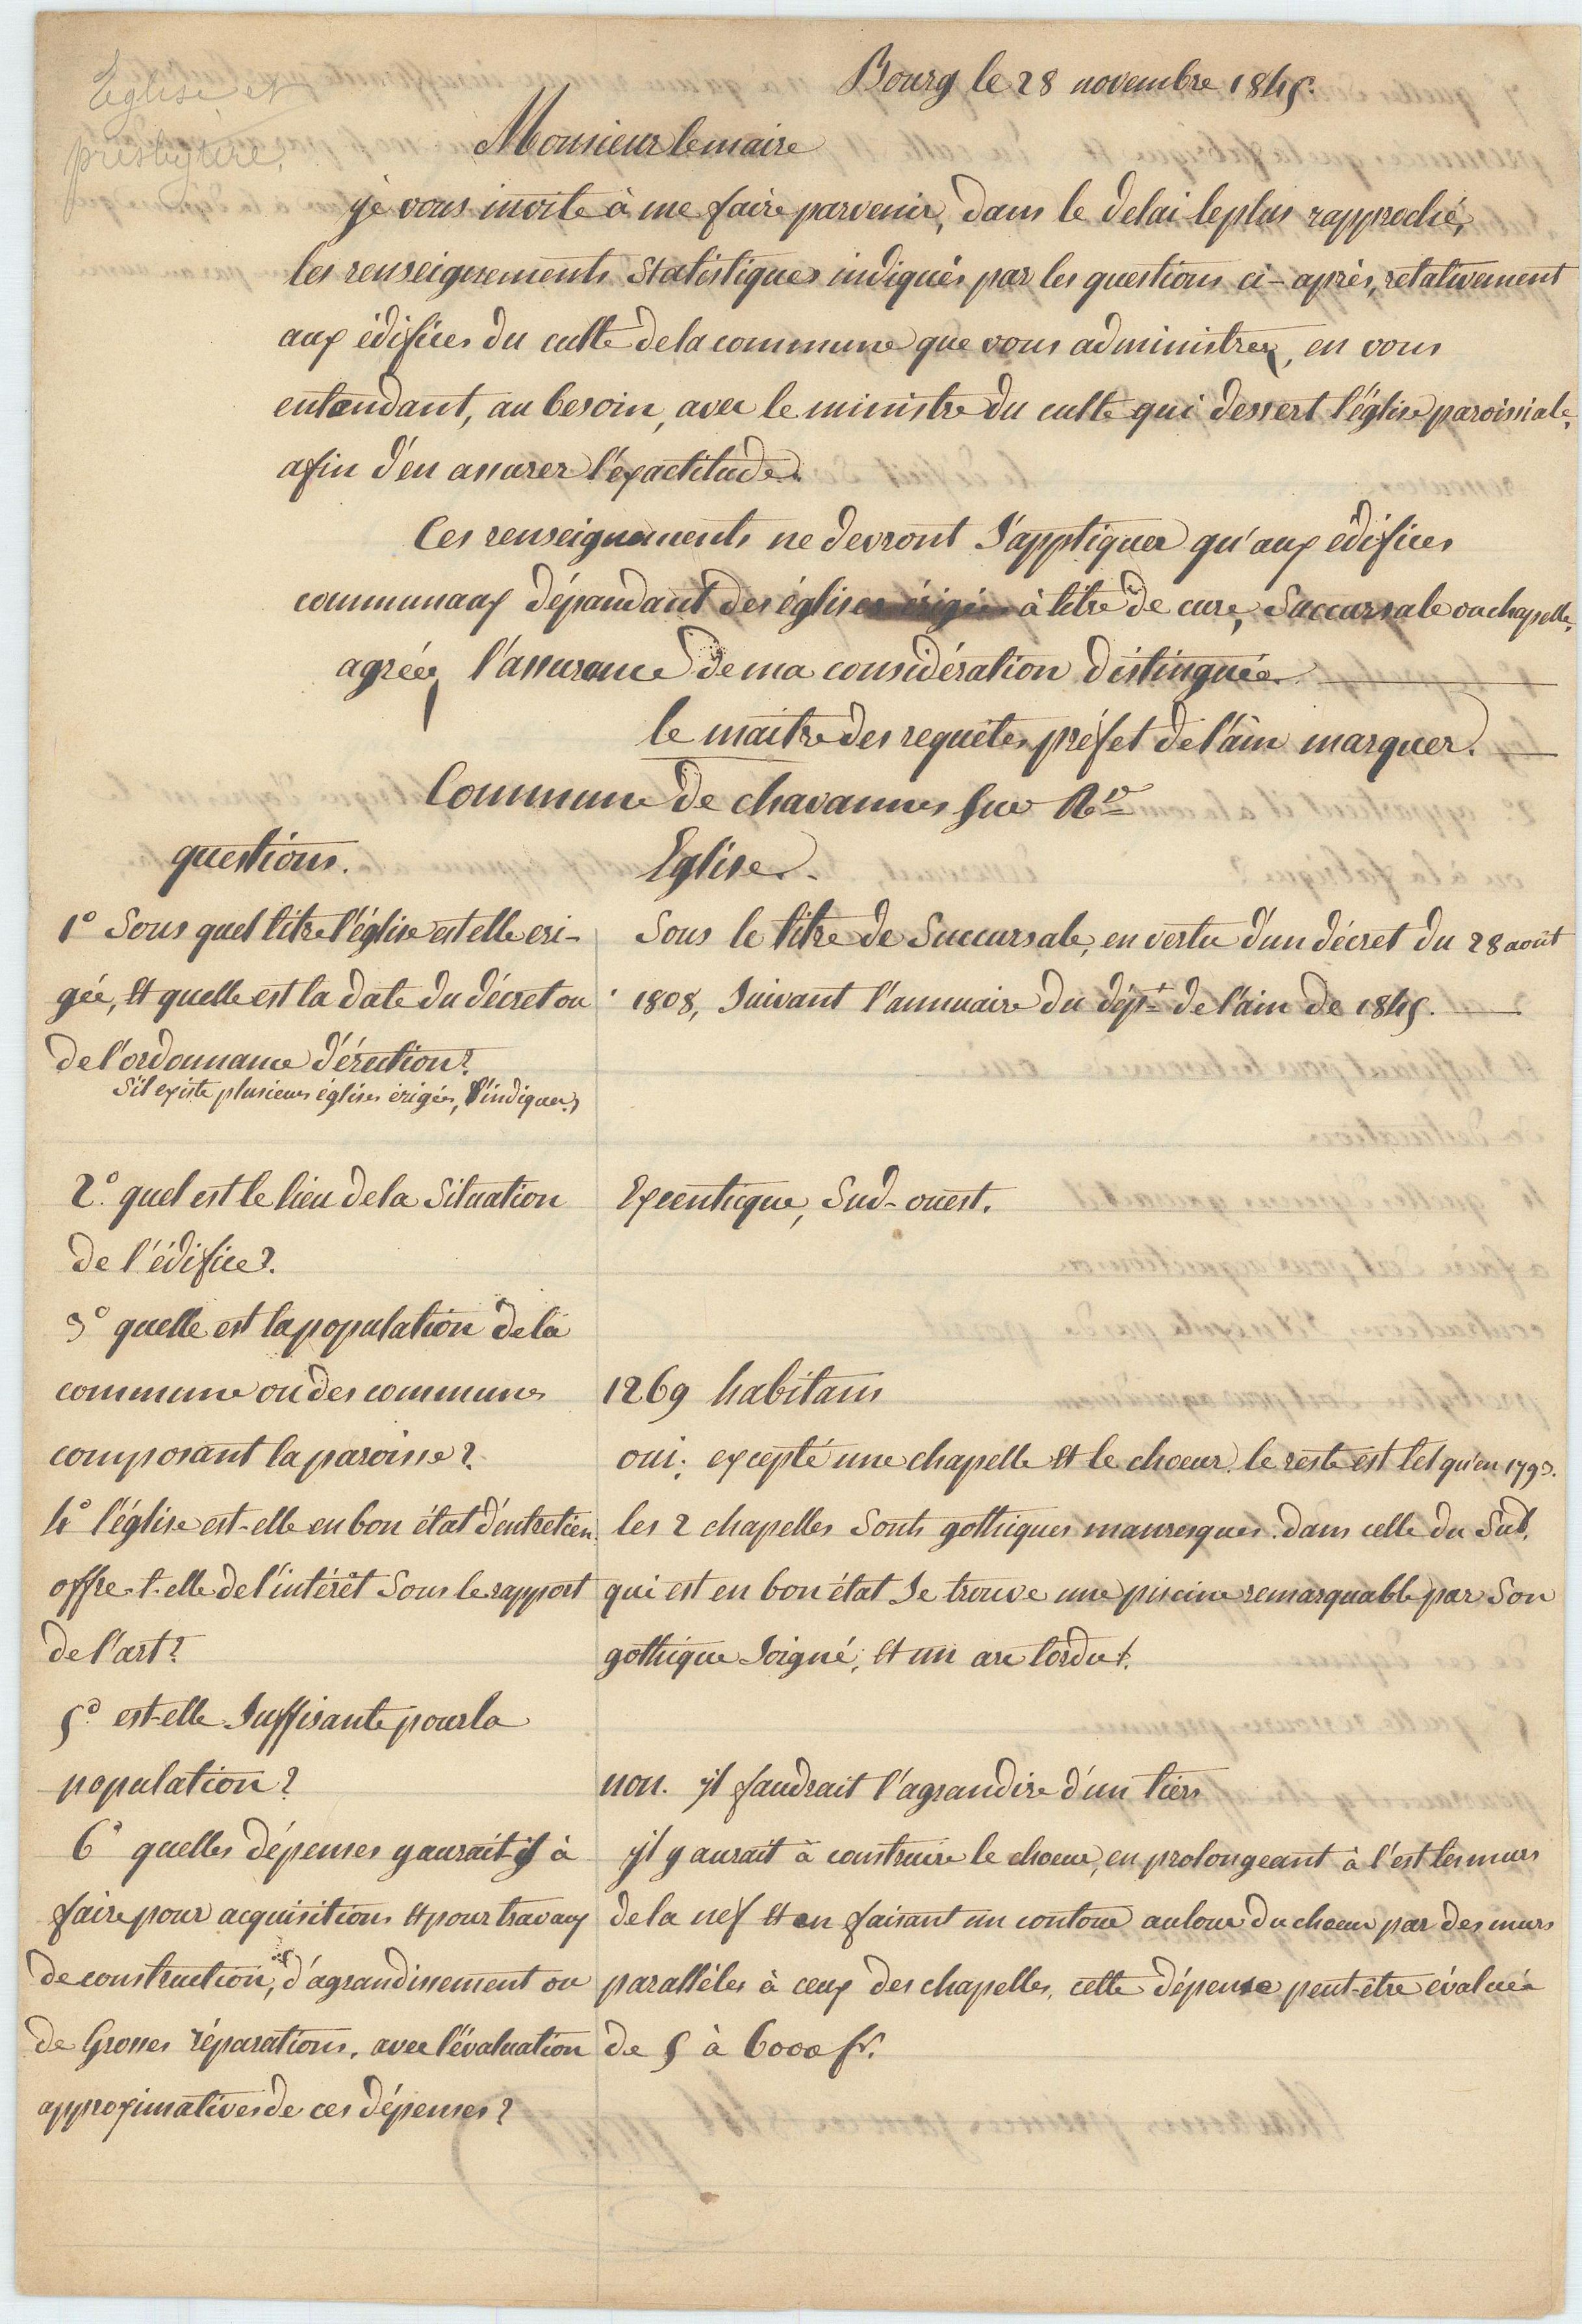 Eglise et
presbytère.
Bourg le 28 novembre 1845.
Monsieur le maire
je vous invite à me faire parvenir, dans le delai le plus rapproché,
les renseignements statistiques indiqués par les questions ci-après, relativement
aux édifices du culte de la commune que vous administrez, en vous
entendant, au besoin, avec le ministre du culte qui dessert l'église paroissiale,
afin d'en assurer l'exactitude.
Ces renseignements ne devront s'appliquer qu'aux édifices
communaux dépandant des églises érigées à titre de cure, succursale ou chapelle,
agréez l'assurance de ma considération distinguée.
le maitre des requêtes, préfet de l'ain marquer.
Commune de chavannes sur
questions.
Eglise.
1° Sous quel titre l'église est elle eri-
gée, et quelle est la date du décret ou
de l'ordonnance d'érection?
S'il existe plusieurs églises érigées, l'indiquer.
Sous le titre de Succursale, en vertu d'un décret du 28 août
1808, suivant l'annuaire du dépt de l'ain de 1845.
2° quel est le lieu de la situation
de l'édifice?
Excentrique, Sud-ouest.
3° quelle est la population de la
commune ou des communes
composant la paroisse?
1269 habitans
4° l'église est-elle en bon état d'entretien,
offre-t-elle de l'intérêt sous le rapport
de l'art?
oui; excepté une chapelle et le choeur. le reste est tel qu'en 1793.
les 2 chapelles sont gothiques mauresques. dans celle du Sud,
qui est en bon état se trouve une piscine remarquable par son
gothique soigné, et un arc tordu.
5° est-elle suffisante pour la
population?
non. il faudrait l'agrandire d'un tiers
6° quelles dépenses y aurait-il à
faire pour acquisitions et pour travaux
de construction, d'agrandissement ou
de Grosses réparations, avec l'évaluation
approximatives de ces dépenses?
il y aurait à construire le choeur, en prolongeant à l'est les murs
de la nef et en faisant un contour autour du choeur par des murs
parallèles à ceux des chapelles, cette dépense peut-être évaluée
de 5 à 6000 fr.